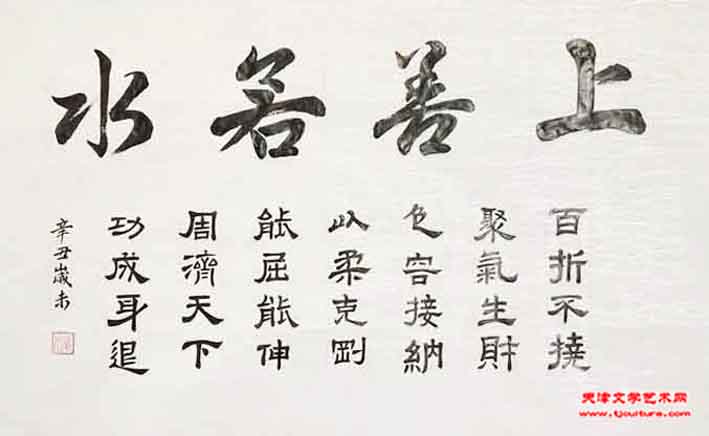 上善若水
百折不撓
聚氣生財
包容接納
以柔克剛
能屈能伸
周濟天下
功成身退
辛丑歲末
天津文学艺术网
www.tjculture.com